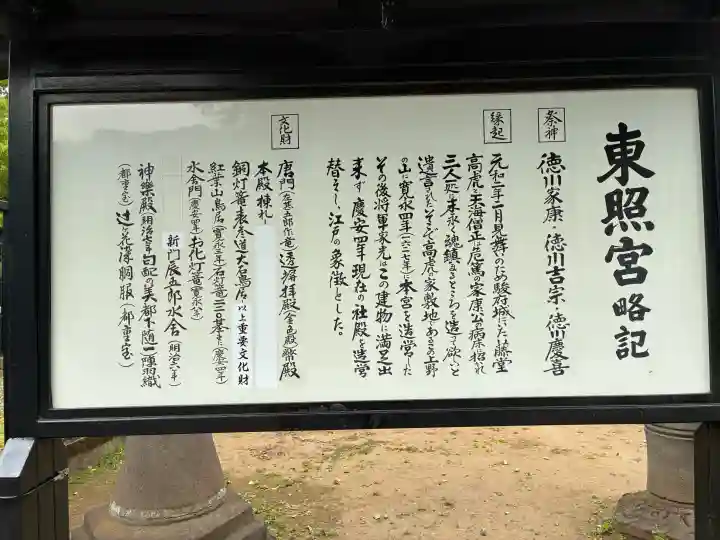 東照宮略記
祭神
徳川家康・徳川吉宗・徳川慶喜
縁起
元和二年二月見舞のため駿府城にいた藤堂
高虎と天海僧正は危篤の家康公の病床に招かれ
三人一処に末永く魂鎮まるところを造って欲しいと
遺言された そこで高虎の家敷地であるこの上野
の山に寛永四年(一六二七年)本宮を造営した
その後将軍家光はこの建物に満足出
来ず 慶安四年現在の社殿を造営
替えし、江戸の象徴とした。
文化財
唐門(左甚五郎作竜)透塀 拝殿(金色殿)幣殿
本殿 棟札
銅灯篭 表参道大石鳥居 以上重要文化財
紅葉山鳥居(寛永
水舎門(慶安四年)お花灯篭
新門辰五郎水舎(明治六年)
神楽殿(明治
(都重宝)辻ヶ花染胴服(都重宝)